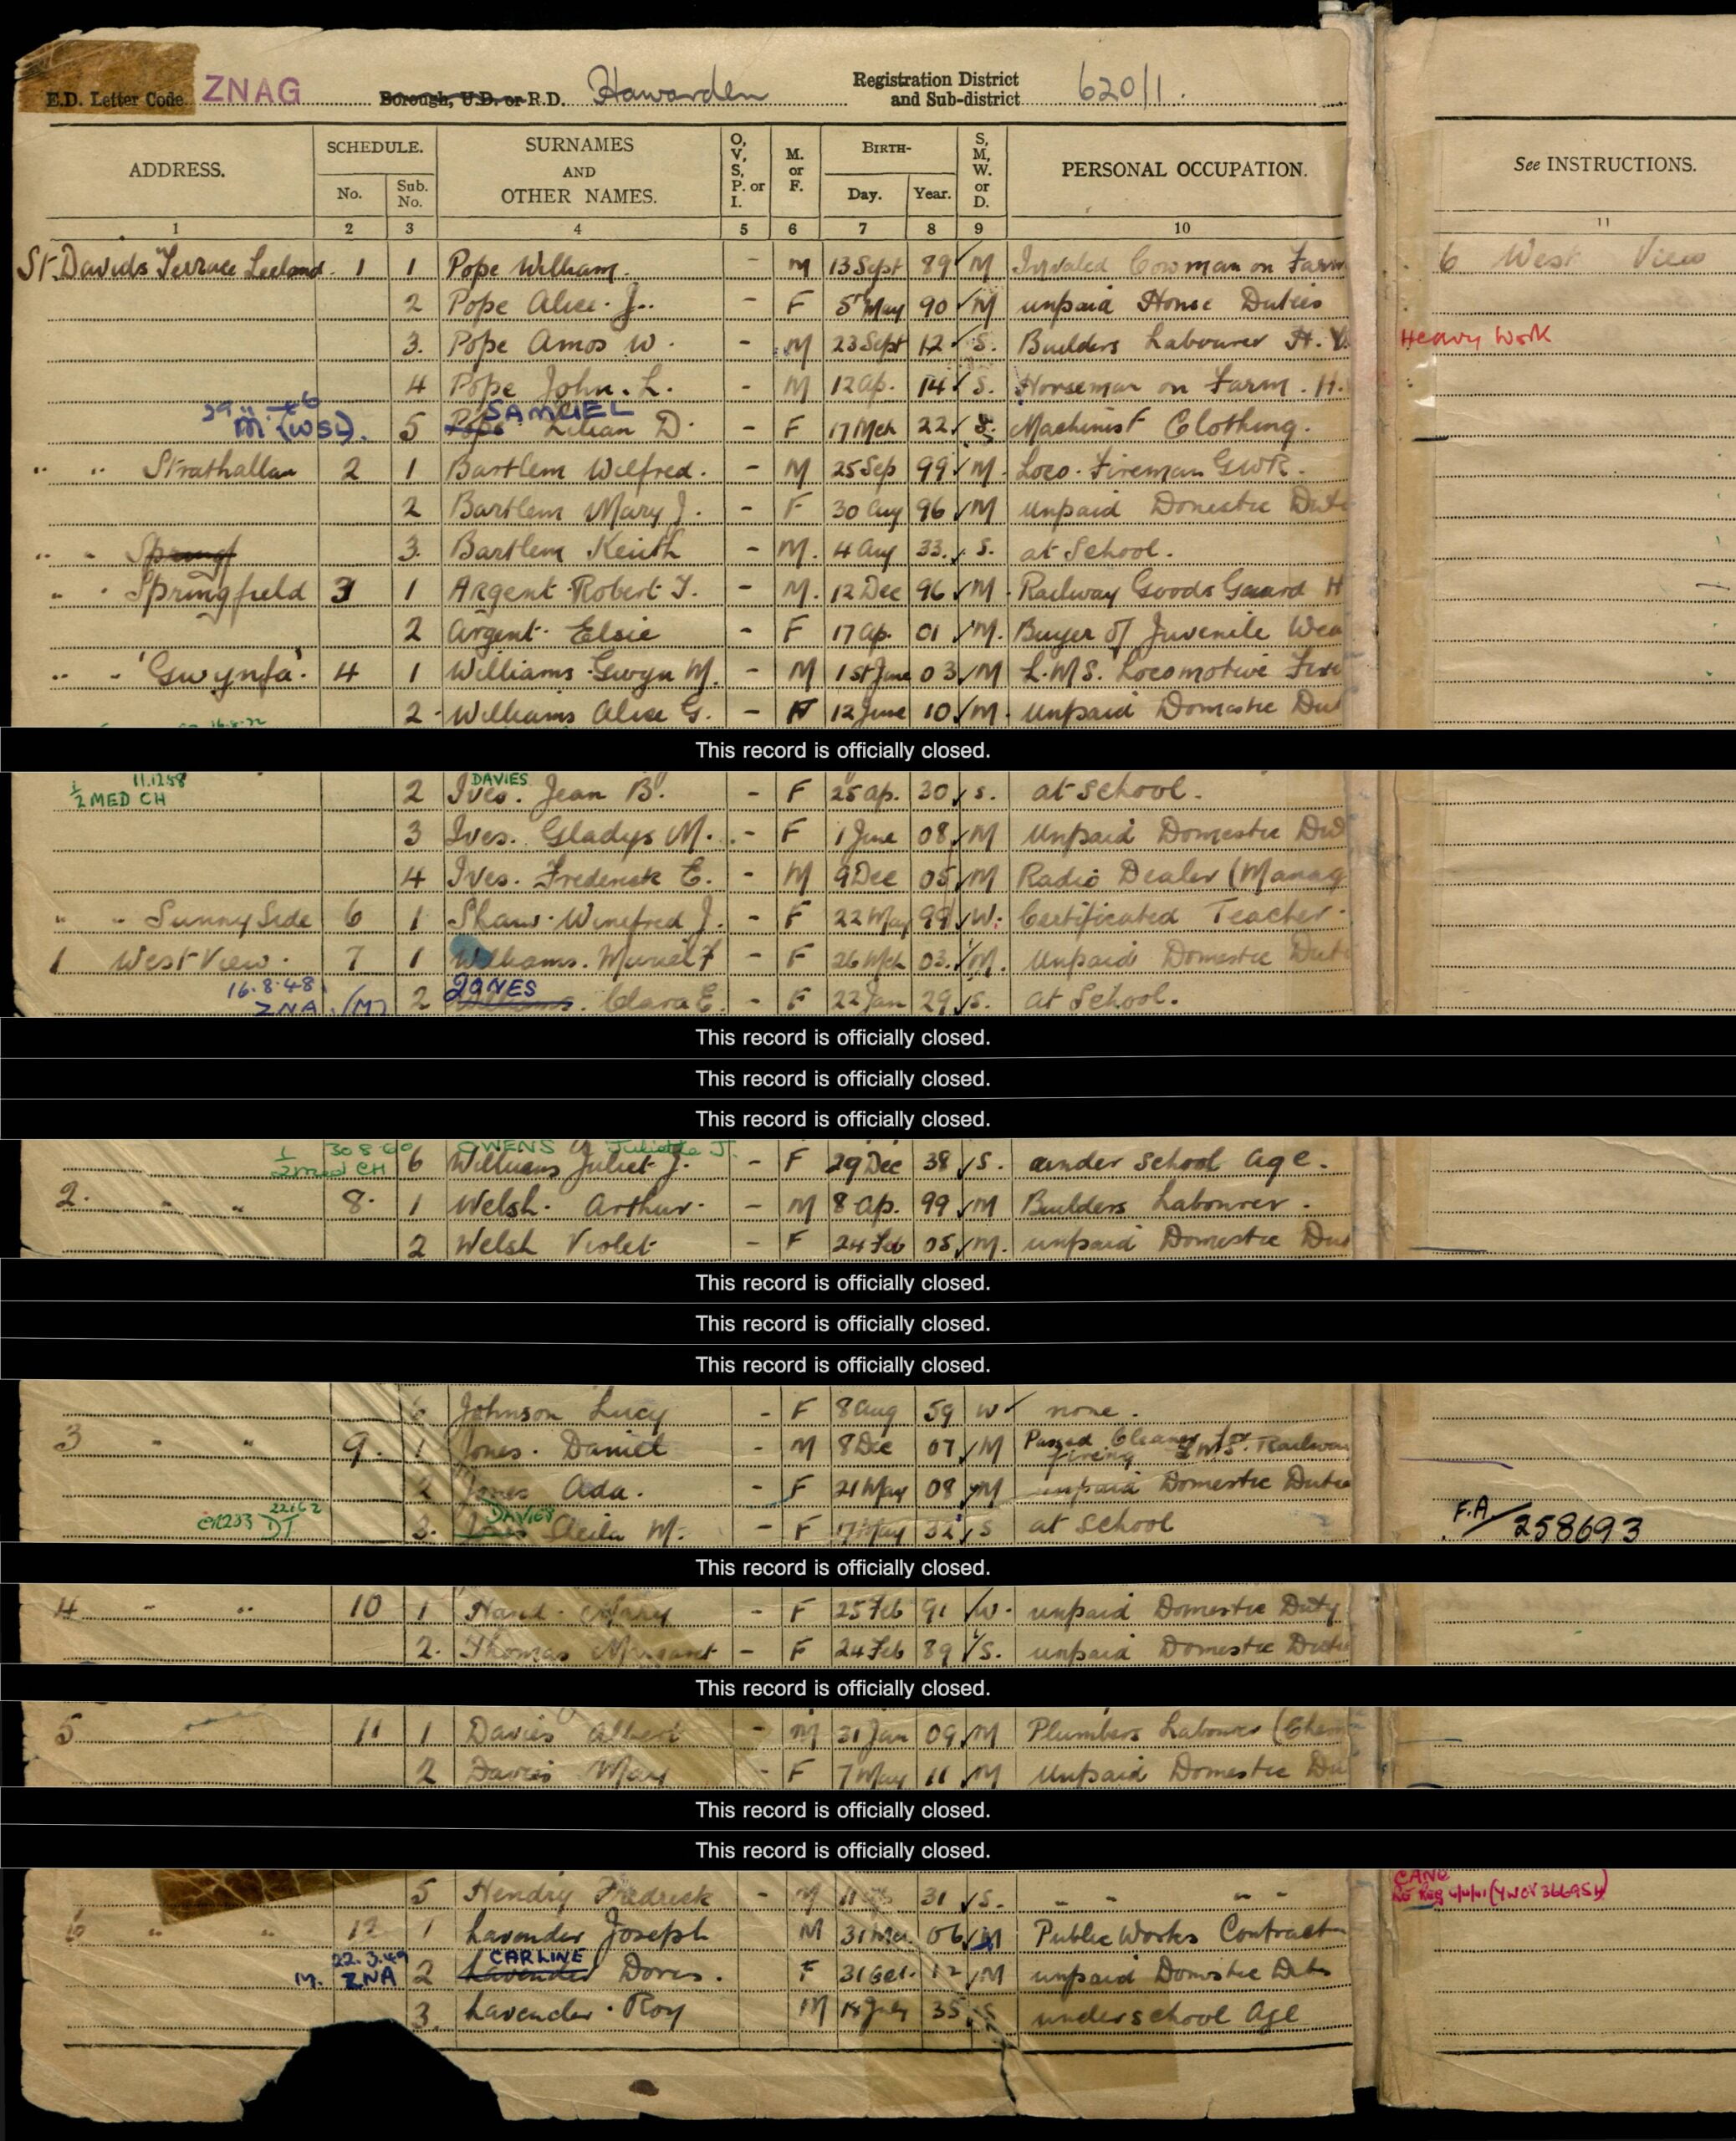 E.D. Letter Code ZNAG Borough, U.D. or R.D. Hawarden Registration District and Sub-district 620/1.
ADDRESS. SCHEDULE. No. Sub. No. SURNAMES AND OTHER NAMES. O, V, S, P. or I. M. or F. BIRTH- Day. Year. S, M, W. or D. PERSONAL OCCUPATION. See INSTRUCTIONS.
1 2 3 4 5 6 7 8 9 10 11
St. Davids Terrace 1 1 Pope William. - M 13 Sept 89 M Cowman on Farm 6 West View
2 Pope Alice J. - F 5th May 90 M unpaid House Duties
3. Pope Amos W. - M 23 Sept 12 S. Builders Labourer H. Heavy Work
4 Pope John. L. - M 12 Ap. 14 S. Horseman on Farm. H.
M (WSL). 5 Pope SAMUEL Lilian D. - F 17 Mch 22 S. Machinist Clothing.
" " Strathallan 2 1 Bartlem Wilfred. - M 25 Sep 99 M. Loco. Fireman GWR.
2 Bartlem Mary J. - F 30 Aug 96 M unpaid Domestic
" " Springf 3. Bartlem Keith - M. 4 Aug 33 S. at School.
" " Springfield 3 1 Argent Robert T. - M. 12 Dec 96 M Railway Goods Guard H
2 Argent. Elsie - F 17 Ap. 01 M. Buyer of Juvenile Wea
" " 'Gwynfa'. 4 1 Williams Gwyn M. - M 1st June 03 M L.M.S. Locomotive Fire
2 Williams Alice G. - F 12 June 10 M. unpaid Domestic Dut
This record is officially closed.
1/2 MED CH 11.12.58 2 Ives. DAVIES Jean B. - F 25 Ap. 30 S. at school.
3 Ives. Gladys M. - F 1 June 08 M Unpaid Domestic
4 Ives. Frederick E. - M 9 Dec 05 M Radio Dealer (Manag
" " Sunny Side 6 1 Shaw Winefred J. - F 22 May 99 W. Certificated Teacher.
1 West View. 7 1 Williams. Muriel F - F 26 Mch 03 M. Unpaid Domestic Duti
16.8.48 ZNA (M) 2 JONES Clara E. - F 22 Jan 29 S. at School.
This record is officially closed.
This record is officially closed.
This record is officially closed.
1/2 med CH 30 8 60 6 OWENS Williams Juliet J. Julietta J. - F 29 Dec 38 S. under school age.
2. " " 8. 1 Welsh. Arthur. - M 8 Ap. 99 M Builders Labourer.
2 Welsh Violet - F 24 Feb 05 M. unpaid Domestic Dut
This record is officially closed.
This record is officially closed.
This record is officially closed.
6 Johnson Lucy - F 8 Aug 59 W none.
3 " " 9. 1 Jones. Daniel - M 8 Dec 07 M Passed Cleaner for firing L.M.S. Railway
2 Jones Ada. - F 21 May 08 M unpaid Domestic Dutie
DT 22.6.2 3. Jones DAVIES Sheila M. - F 17 May 32 S at school F.A/258693
This record is officially closed.
4 " " 10 1 Hand. Mary - F 25 Feb 91 W. unpaid Domestic Duty
2. Thomas Margaret - F 24 Feb 89 S. unpaid Domestic Duti
This record is officially closed.
5 11 1 Davies Albert - M 31 Jan 09 M Plumbers Labourer (Chem
2 Davies May - F 7 May 11 M Unpaid Domestic Du
This record is officially closed.
This record is officially closed.
5 Hendry Fredrick - M 11 31 S. " " " " CANC
6 " " 12 1 Lavender Joseph M 31 Mar. 06 M Public Works Contract
M. 22.3.49 ZNA 2 Lavender CARLINE Doris. F 31 Oct. 12 M unpaid Domestic
3. Lavender. Roy M 18 July 35 S under school Age